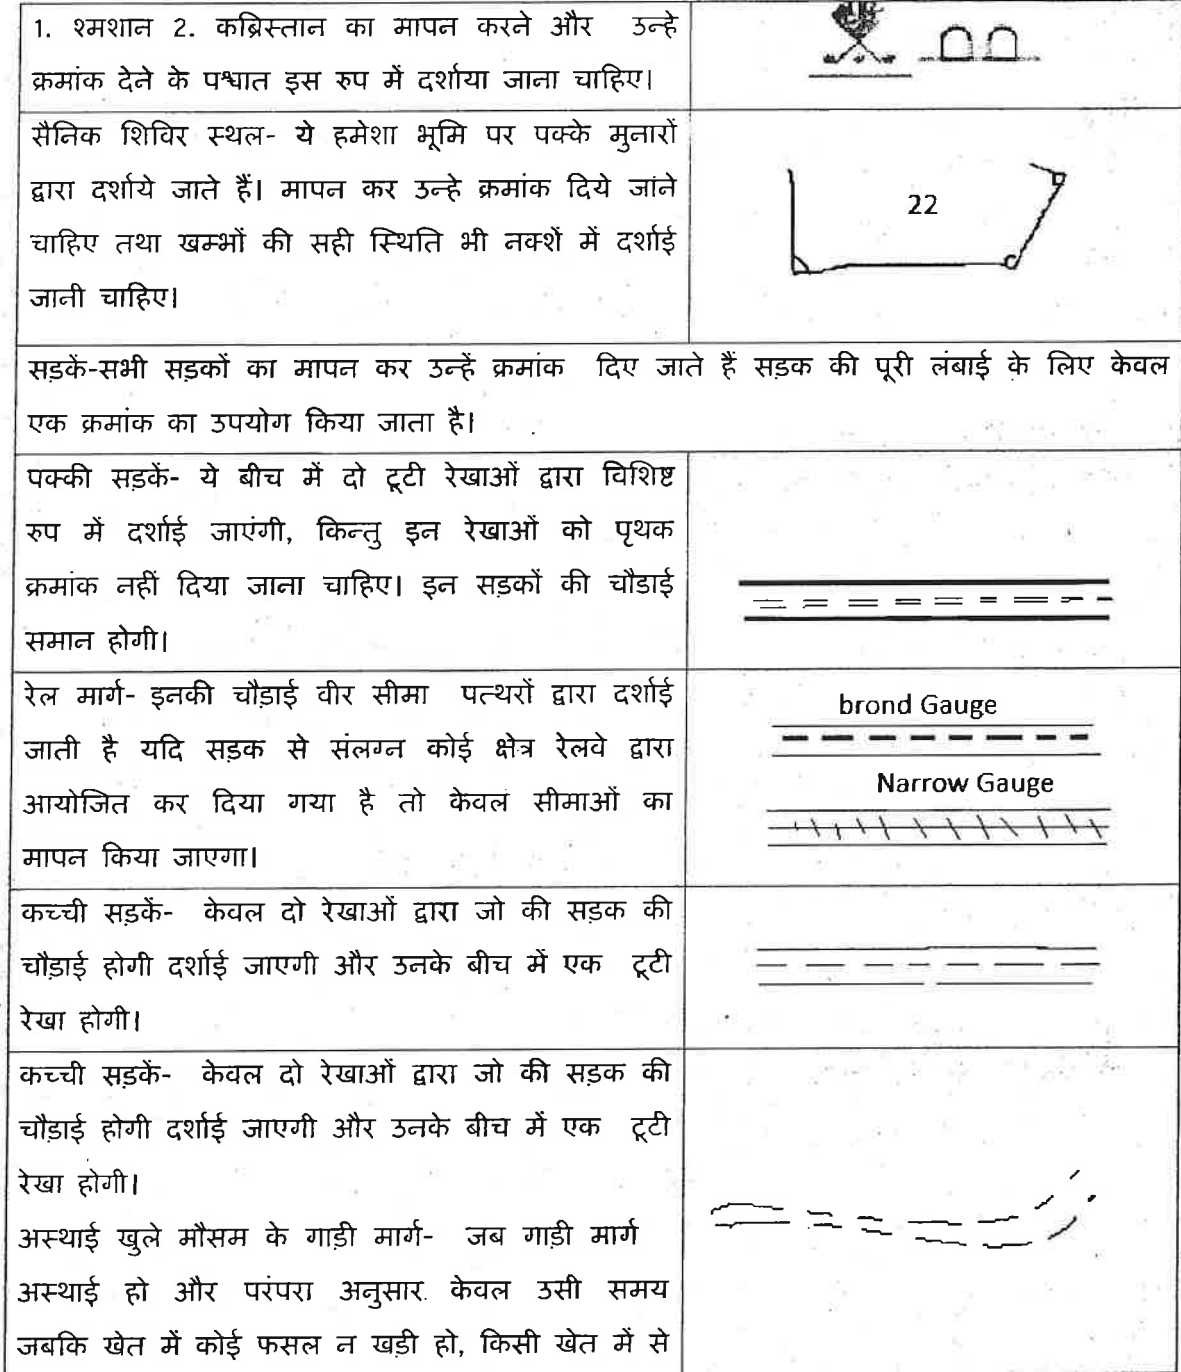 1. श्मशान 2. कब्रिस्तान का मापन करने और उन्हे
क्रमांक देने के पश्चात इस रुप में दर्शाया जाना चाहिए।
सैनिक शिविर स्थल- ये हमेशा भूमि पर पक्के मुनारों
द्वारा दर्शाये जाते हैं। मापन कर उन्हे क्रमांक दिये जांने
चाहिए तथा खम्भों की सही स्थिति भी नक्शें में दर्शाई
जानी चाहिए।
22
सड़कें-सभी सड़कों का मापन कर उन्हें क्रमांक दिए जाते हैं सड़क की पूरी लंबाई के लिए केवल
एक क्रमांक का उपयोग किया जाता है।
पक्की सड़कें- ये बीच में दो टूटी रेखाओं द्वारा विशिष्ट
रुप में दर्शाई जाएंगी, किन्तु इन रेखाओं को पृथक
क्रमांक नहीं दिया जाना चाहिए। इन सड़कों की चौडाई
समान होगी।
रेल मार्ग- इनकी चौड़ाई वीर सीमा पत्थरों द्वारा दर्शाई
जाती है यदि सड़क से संलग्न कोई क्षेत्र रेलवे द्वारा
आयोजित कर दिया गया है तो केवल सीमाओं का
मापन किया जाएगा।
brond Gauge
Narrow Gauge
कच्ची सड़कें- केवल दो रेखाओं द्वारा जो की सड़क की
चौड़ाई होगी दर्शाई जाएगी और उनके बीच में एक टूटी
रेखा होगी।
कच्ची सड़कें- केवल दो रेखाओं द्वारा जो की सड़क की
चौड़ाई होगी दर्शाई जाएगी और उनके बीच में एक टूटी
रेखा होगी।
अस्थाई खुले मौसम के गाड़ी मार्ग- जब गाड़ी मार्ग
अस्थाई हो और परंपरा अनुसार केवल उसी समय
जबकि खेत में कोई फसल न खड़ी हो, किसी खेत में से